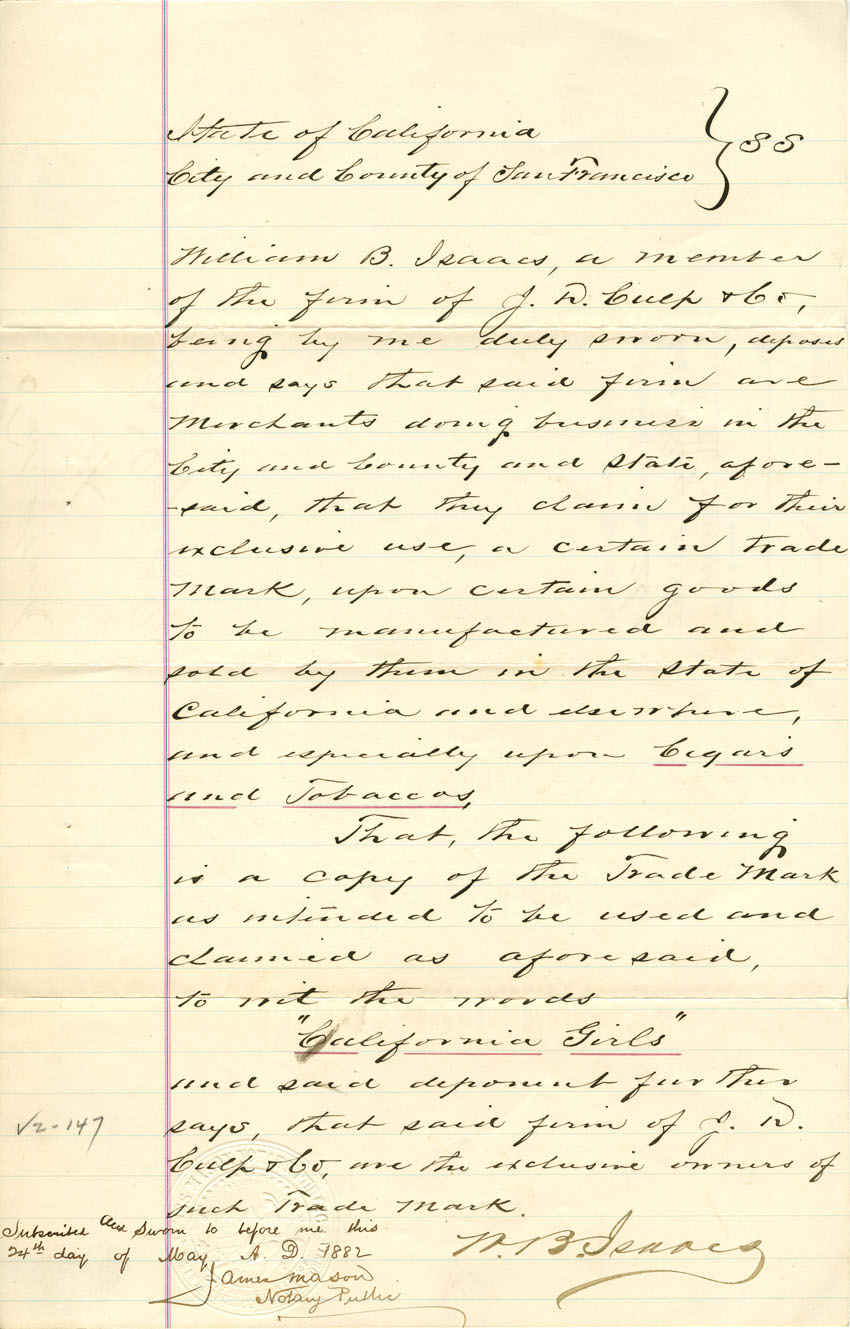 State of California
City and County of San Francisco } SS
William B. Isaacs, a member
of the firm of J. D. Culp & Co,
being by me duly sworn, deposes
and says that said firm are
Merchants doing business in the
City and County and State, afore-
-said, that they claim for their
exclusive use, a certain trade
Mark, upon certain goods
to be manufactured and
sold by them in the State of
California and elsewhere,
and especially upon Cigars
and Tobaccos,
That, the following
is a copy of the Trade Mark
as intended to be used and
claimed as aforesaid,
to wit the words
"California Girls"
and said deponent further
says, that said firm of J. D.
Culp & Co, are the exclusive owners of
such Trade Mark.
W. B. Isaacs
√2-147
Subscribed and Sworn to before me this
24th day of May A. D. 1882
James Mason
Notary Public